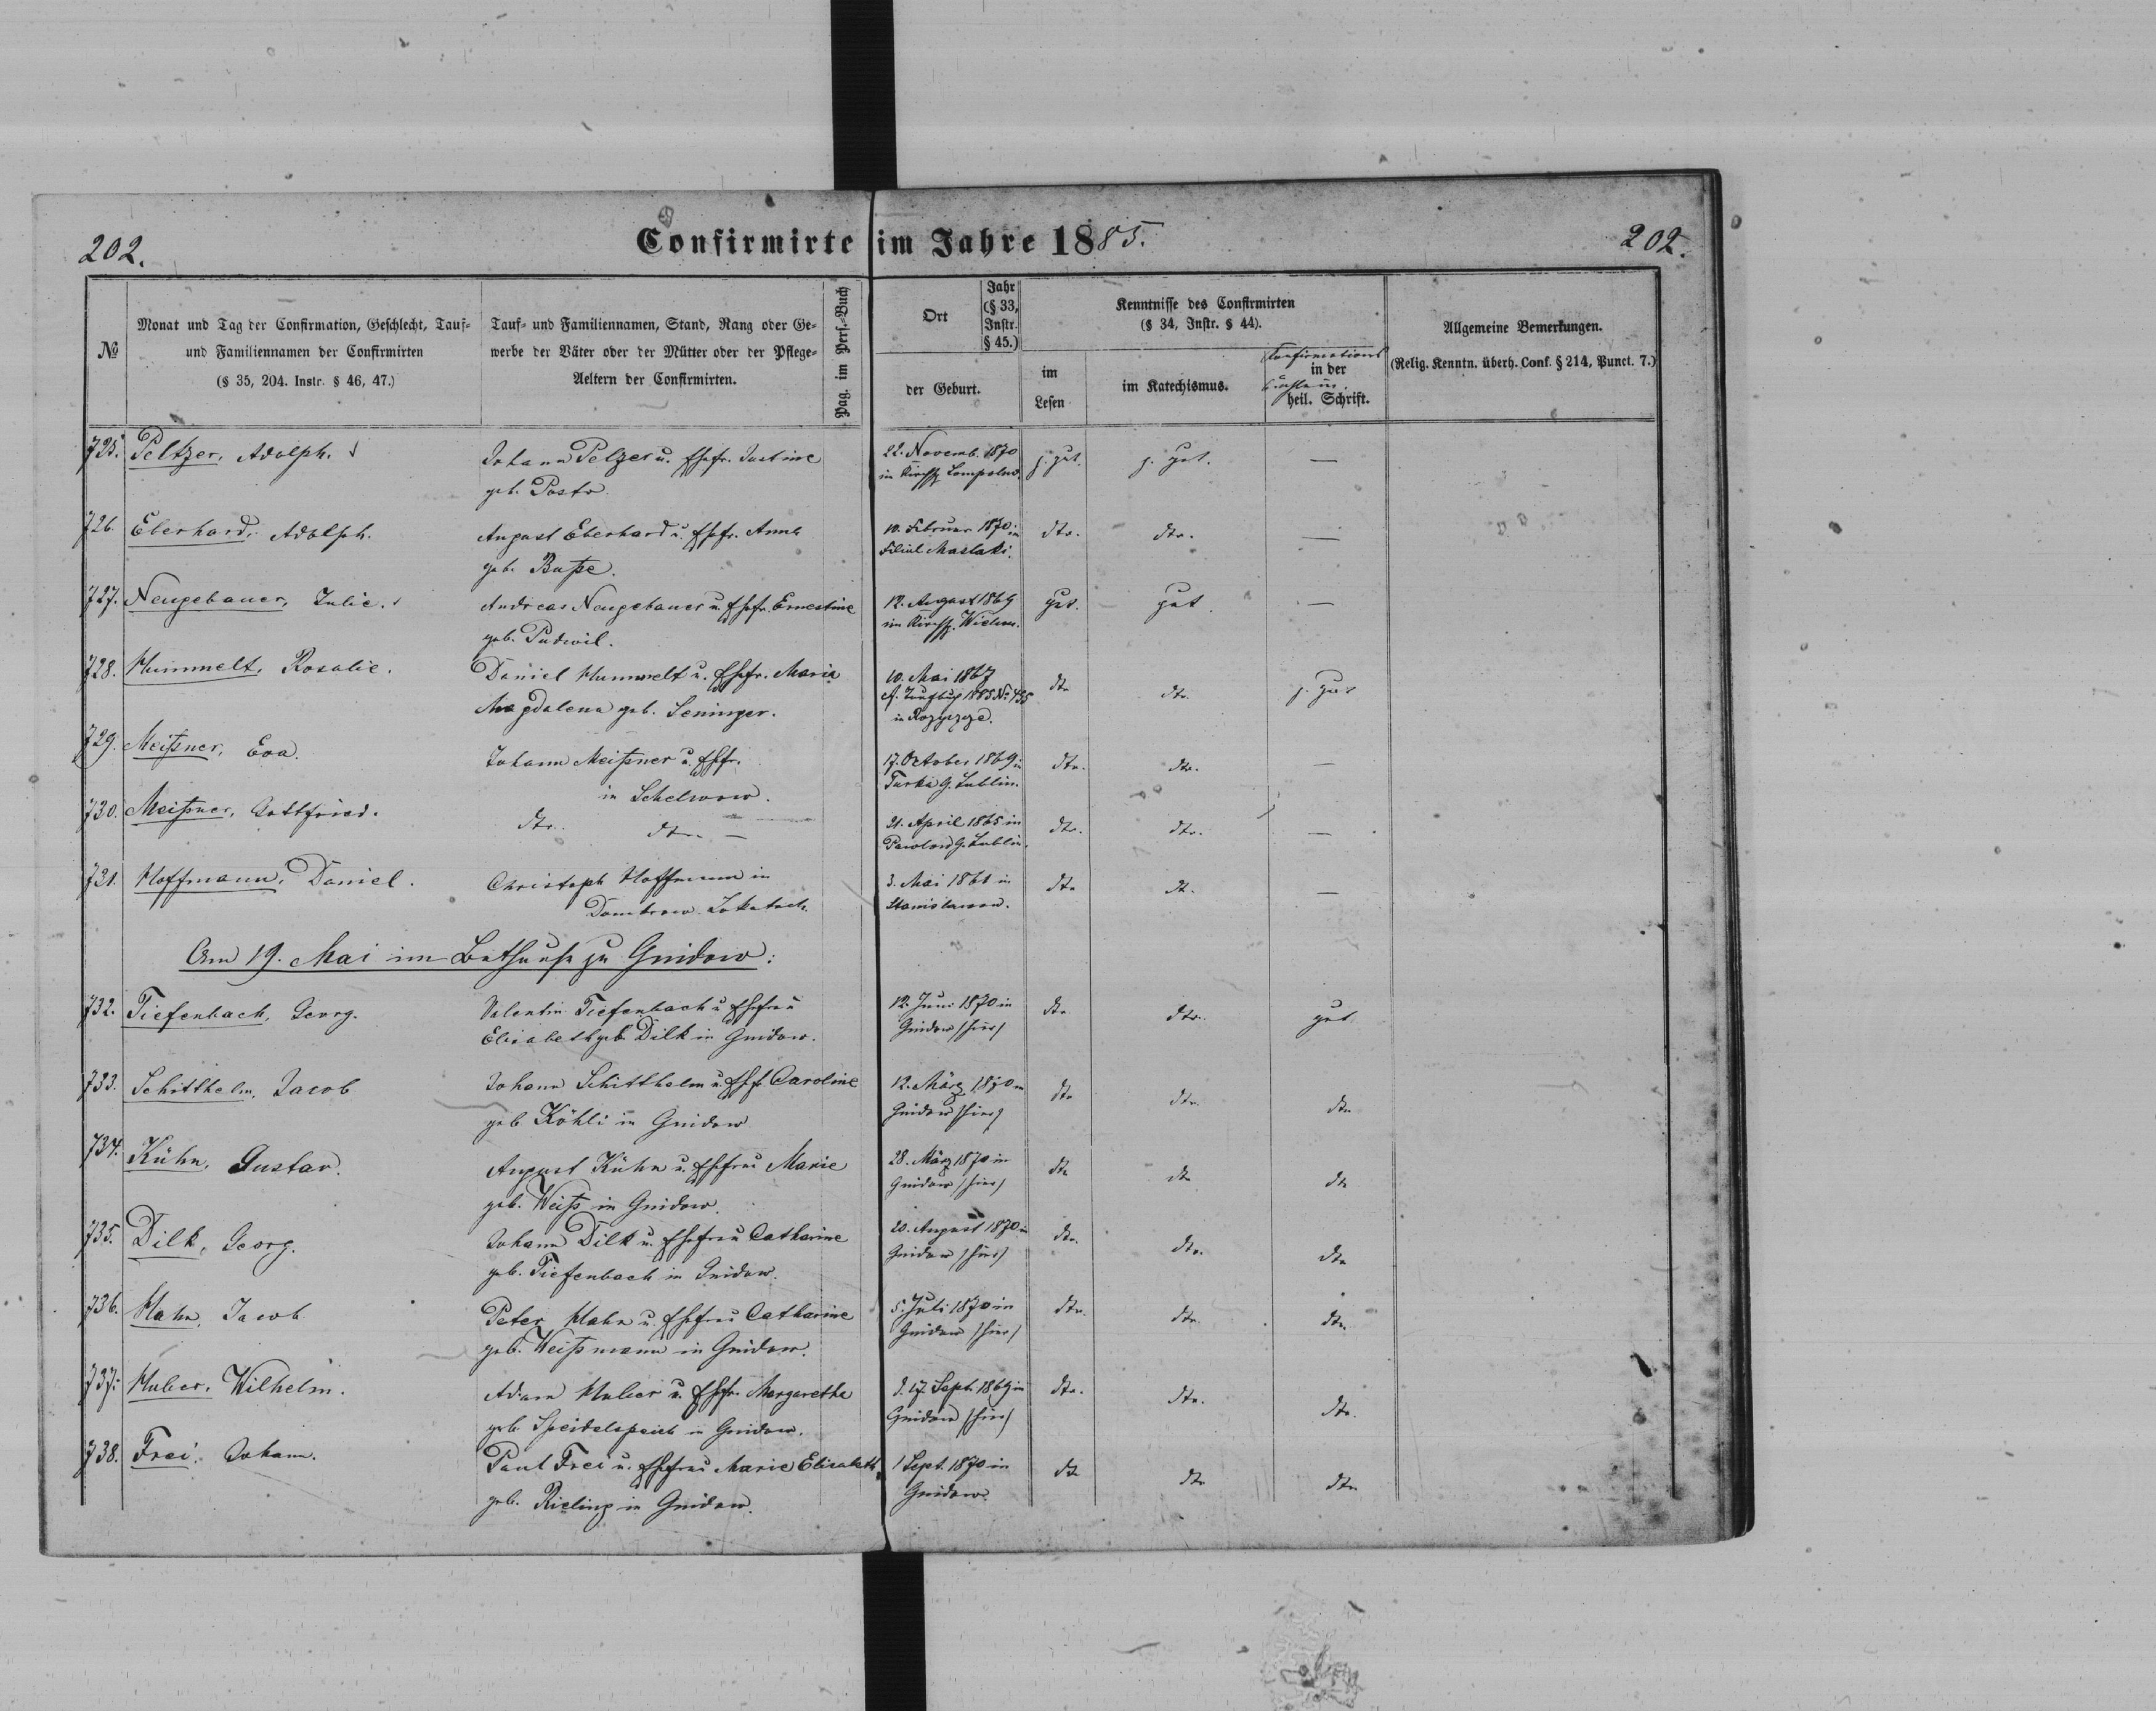 202.
Confirmirte im Jahre 1885.
202.
№
Monat und Tag der Confirmation, Geschlecht, Tauf-
und Familiennamen der Confirmirten
(§ 35, 204. Instr. § 46, 47.)
Tauf- und Familiennamen, Stand, Rang oder Ge-
werbe der Väter oder der Mütter oder der Pflege-
Aeltern der Confirmirten.
Pag. im Pers.-Buch
Ort
Jahr
(§ 33,
Instr.
§ 45.)
der Geburt.
Kenntnisse des Confirmirten
(§ 34, Instr. § 44).
im
Lesen
im Katechismus.
Confirmations
in der
heil. Schrift.
Allgemeine Bemerkungen.
(Relig. Kenntn. überh. Conf. § 214, Punct. 7.)
725. Peltzer, Adolph.
Johann Pelzer u. Ehefr. Justine
geb. Posto.
22. Novemb. 1870
im Kirchsp.
z. gut. z. gut. —
726. Eberhard, Adolph.
August Eberhard u. Ehefr. Anna
geb. Buße.
10. Februar 1870 in
Filial Maslaki.
dto. dto. —
727. Neugebauer, Julie.
Andreas Neugebauer u. Ehefr. Ernestine
geb. Padwil.
12. August 1869
im Kirchsp. Wielun.
gut. gut. —
728. Hummelt, Rosalie.
Daniel Hummelt u. Ehefr. Maria
Magdalena geb. Seninger.
10. Mai 1867
in Rozyszcze.
dto dto. z. gut
729. Meißner, Eva.
Johann Meißner u. Ehfr.
in Schelwow.
17. October 1869 in
Turka G. Lublin.
dto. dto. —
730. Meißner, Gottfried.
dto. dto. —
21. April 1865 in
Pawlow G. Lublin.
dto. dto. —
731. Hoffmann, Daniel.
Christoph Hoffmann in
Dombrow
3. Mai 1868 in
Stanislawow.
dto dt. —
Am 19. Mai im Bethause zu Gnidow:
732. Tiefenbach, Georg.
Valentin Tiefenbach u Ehefrau
Elisabeth geb. Dilk in Gnidow.
12. Juni 1870 in
Gnidow /hier/
dto dto. gut.
733. Schitthelm, Jacob
Johann Schitthelm u. Ehfr. Caroline
geb Köhli in Gnidow
12. März 1870 in
Gnidow /hier/
dto dto. dto
734. Kühn, Gustav.
August Kühn u. Ehefrau Marie
geb. Weiß in Gnidow.
28. März 1870 in
Gnidow /hier/
dto dto dto
735. Dilk, Georg.
Johann Dilk u. Ehefrau Catharine
geb. Tiefenbach in Gnidow.
20. August 1870 in
Gnidow /hier/
dto. dto. dto
736. Hahn, Jacob
Peter Hahn u. Ehefrau Catharine
geb. Weißmann in Gnidow.
5. Juli 1870 in
Gnidow /hier/
dto. dto. dto.
737. Huber, Wilhelm.
Adam Huber u. Ehfr. Margaretha
geb in Gnidow.
d. 17. Sept. 1869 in
Gnidow /hier/
dto. dto. dto.
738. Frei, Johann.
Paul Frei u. Ehefrau Marie Elisabeth,
geb. Rieling in Gnidow.
1 Sept. 1870 in
Gnidow.
dto dto dto